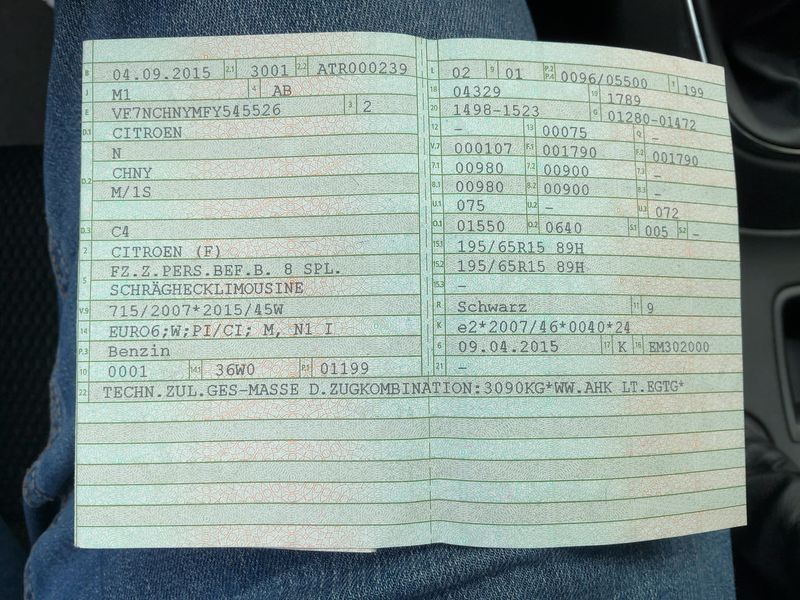 B 04.09.2015 2.1 3001 2.2 ATR000239
J M1 4 AB
E VF7NCHNYMFY545526 3 2
D.1 CITROEN
N
D.2 CHNY
M/1S
D.3 C4
2 CITROEN (F)
5 FZ.Z.PERS.BEF.B. 8 SPL.
SCHRÄGHECKLIMOUSINE
V.9 715/2007*2015/45W
14 EURO6;W;PI/CI; M, N1 I
P.3 Benzin
10 0001 14.1 36W0 P.1 01199
L 02 9 01 P.2 P.4 0096/05500 T 199
18 04329 19 1789
20 1498-1523 G 01280-01472
12 – 13 00075 Q –
V.7 000107 F.1 001790 F.2 001790
7.1 00980 7.2 00900 7.3 –
8.1 00980 8.2 00900 8.3 –
U.1 075 U.2 – U.3 072
O.1 01550 O.2 0640 S.1 005 S.2 –
15.1 195/65R15 89H
15.2 195/65R15 89H
15.3 –
R Schwarz 11 9
K e2*2007/46*0040*24
6 09.04.2015 17 K 16 EM302000
21 –
22 TECHN.ZUL.GES-MASSE D.ZUGKOMBINATION:3090KG*WW.AHK LT.EGTG*